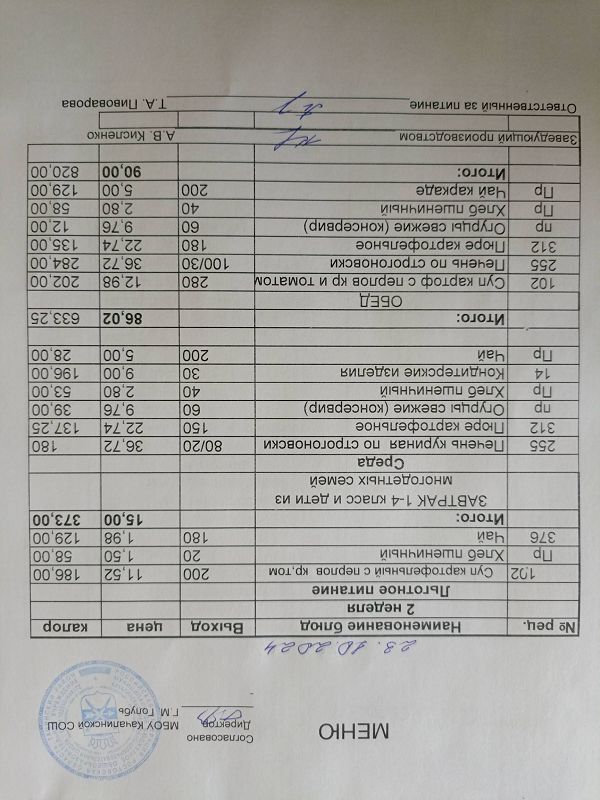 Согласовано
Директор
МБОУ Качалинской СОШ
Г.М. Голубь
МЕНЮ
23.10.2024
№ рец. Наименование блюд Выход цена калор
2 неделя
Льготное питание
102 Суп картофельный с перлов кр,том 200 11,52 186,00
Пр Хлеб пшеничный 20 1,50 58,00
376 Чай 180 1,98 129,00
Итого: 15,00 373,00
ЗАВТРАК 1-4 класс и дети из
многодетных семей
Среда
255 Печень куриная по строгоновски 80/20 36,72 180
312 Пюре картофельное 150 22,74 137,25
пр Огурцы свежие (консервир) 60 9,76 39,00
Пр Хлеб пшеничный 40 2,80 53,00
14 Кондитерские изделия 30 9,00 196,00
Пр Чай 200 5,00 28,00
Итого: 86,02 633,25
ОБЕД
102 Суп картоф с перлов кр и томатом 280 12,98 202,00
255 Печень по строгоновски 100/30 36,72 284,00
312 Пюре картофельное 180 22,74 135,00
пр Огурцы свежие (консервир) 60 9,76 12,00
Пр Хлеб пшеничный 40 2,80 58,00
Пр Чай каркаде 200 5,00 129,00
Итого: 90,00 820,00
Заведующий производством А.В. Кисленко
Ответственный за питание Т.А. Пивоварова